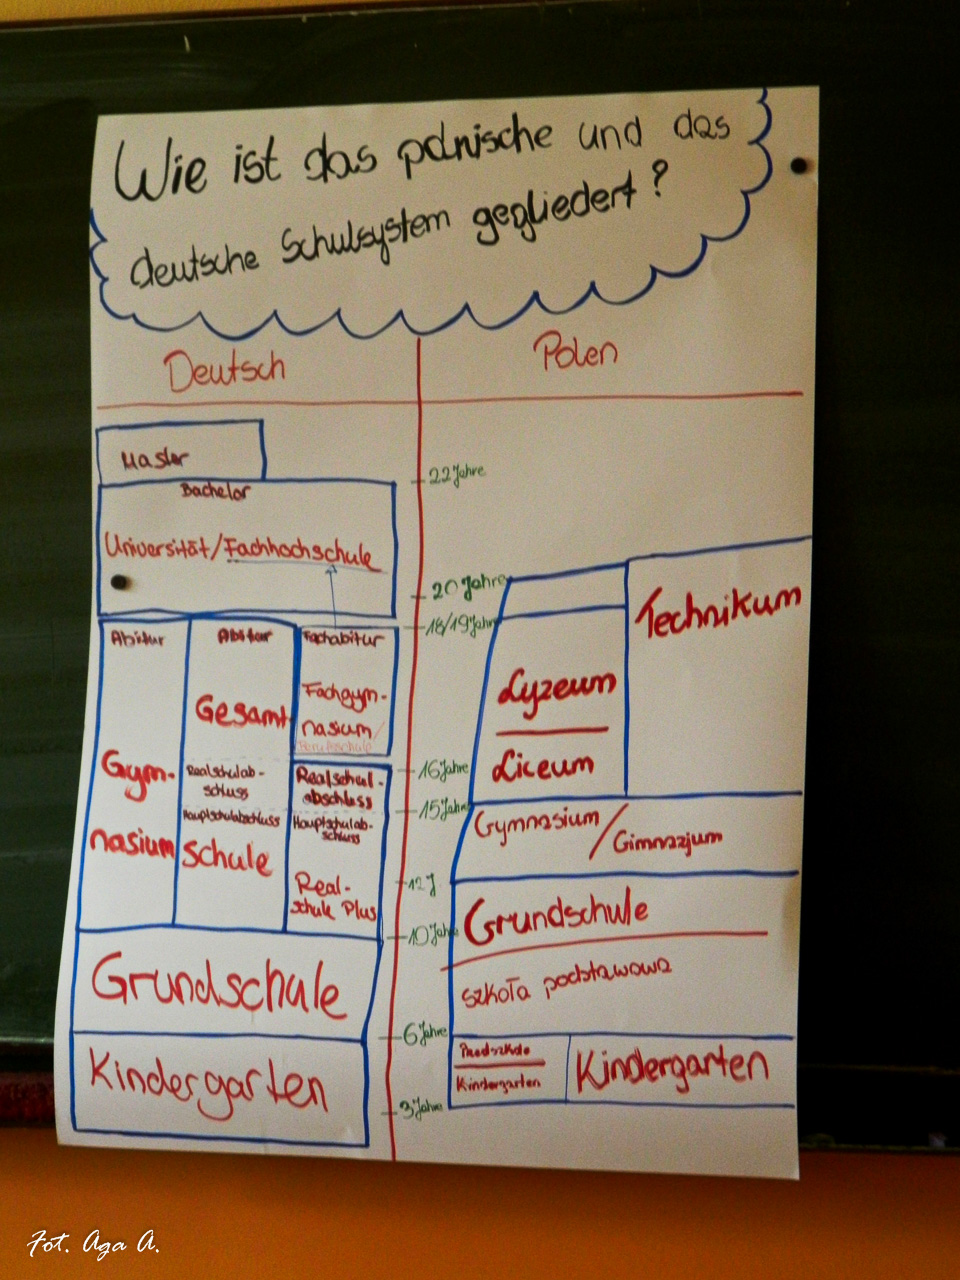 Wie ist das polnische und das
deutsche Schulsystem gegliedert?
Deutsch
Polen
Master
22 Jahre
Bachelor
Universität/Fachhochschule
20 Jahre
18/19 Jahre
Abitur
Abitur
Fachabitur
Gym-
nasium
Gesamt
Realschulab-
schluss
Hauptschulabschluss
schule
Fachgym-
nasium/
Berufsschule
Realschul-
abschluss
Hauptschulab-
schluss
Real-
schule Plus
16 Jahre
15 Jahre
12 J
10 Jahre
Grundschule
6 Jahre
Kindergarten
3 Jahre
Technikum
Lyzeum
Liceum
Gymnasium/
Gimnazjum
Grundschule
szkoła podstawowa
Kindergarten
Kindergarten
Fot. Aga A.